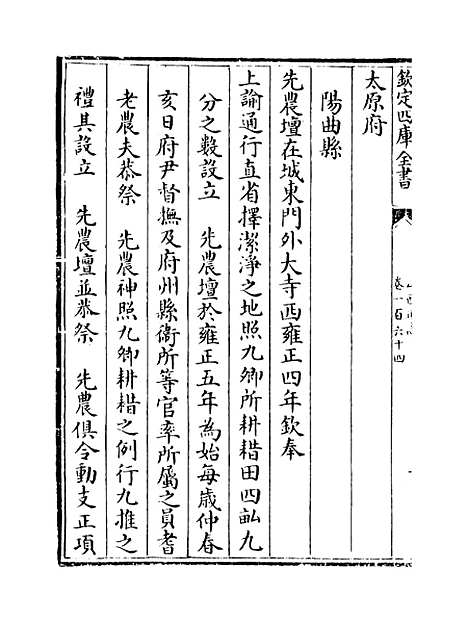 欽定四庫全書
卷一百六十四
太原府
陽曲縣
先農壇在城東門外大寺西雍正四年欽奉
上諭通行直省擇潔淨之地照九卿所耕耤田四畝九
分之數設立　先農壇於雍正五年為始每歲仲春
亥日府尹督撫及府州縣衛所等官率所屬之員耆
老農夫恭祭　先農神照九卿耕耤之例行九推之
禮其設立　先農壇並恭祭　先農俱令動支正項